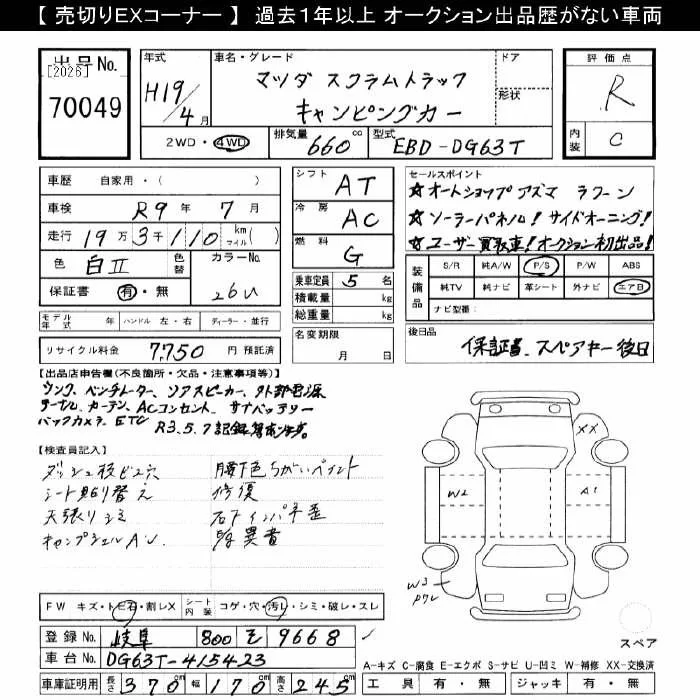 【 売切りEXコーナー 】 過去１年以上 オークション出品歴がない車両
出品No.
[2026]
70049
年式
H19/4月
車名・グレード
マツダ スクラムトラック
キャンピングカー
ドア
形状
2WD・4WD
排気量 660 cc
型式 EBD-DG63T
評価点
R
内装 C
車歴 自家用・( )
車検 R9年 7月
走行 19万3千110 km マイル( )
色 白II 色替
カラーNo. 26U
保証書 有・無
モデル年式 年 ハンドル 左・右 ディーラー・並行
リサイクル料金 7,750 円 預託済
シフト AT
冷房 AC
燃料 G
乗車定員 5 名
積載量 kg
総重量 kg
名変期限
月 日
セールスポイント
☆オートショップ アズマ ラクーン
☆ソーラーパネル！サイドオーニング！
☆ユーザー買取車！オークション初出品！
装備品
S/R 純A/W P/S P/W ABS
純TV 純ナビ 革シート 外ナビ エアB
ナビ型番:
後日品
保証書、スペアキー後日
【出品店申告欄(不良箇所・欠品・注意事項等)】
シンク、ベンチレーター、リアスピーカー、外部電源
テーブル、カーテン、ACコンセント、サブバッテリー
バックカメラ、ETC R3.5.7記録簿
【検査員記入】
ダッシュ板ビス穴
シート貼り替え
天張りシミ
キャンプシェルAU
腰下色ちがいペイント
修復
右Fインパネ歪
異音
FW キズ・ト石・割レX
シート内装
コゲ・穴・汚レ・シミ・破レ・スレ
登録No. 岐阜 800 そ 9668
車台No. DG63T-415423
車庫証明用 長さ 370 cm 幅 170 cm 高さ 245 cm
XX
W2
A1
W3
スペア
A-キズ C-腐食 E-エクボ S-サビ U-凹ミ W-補修 XX-交換済
工具 有・無 ジャッキ 有・無